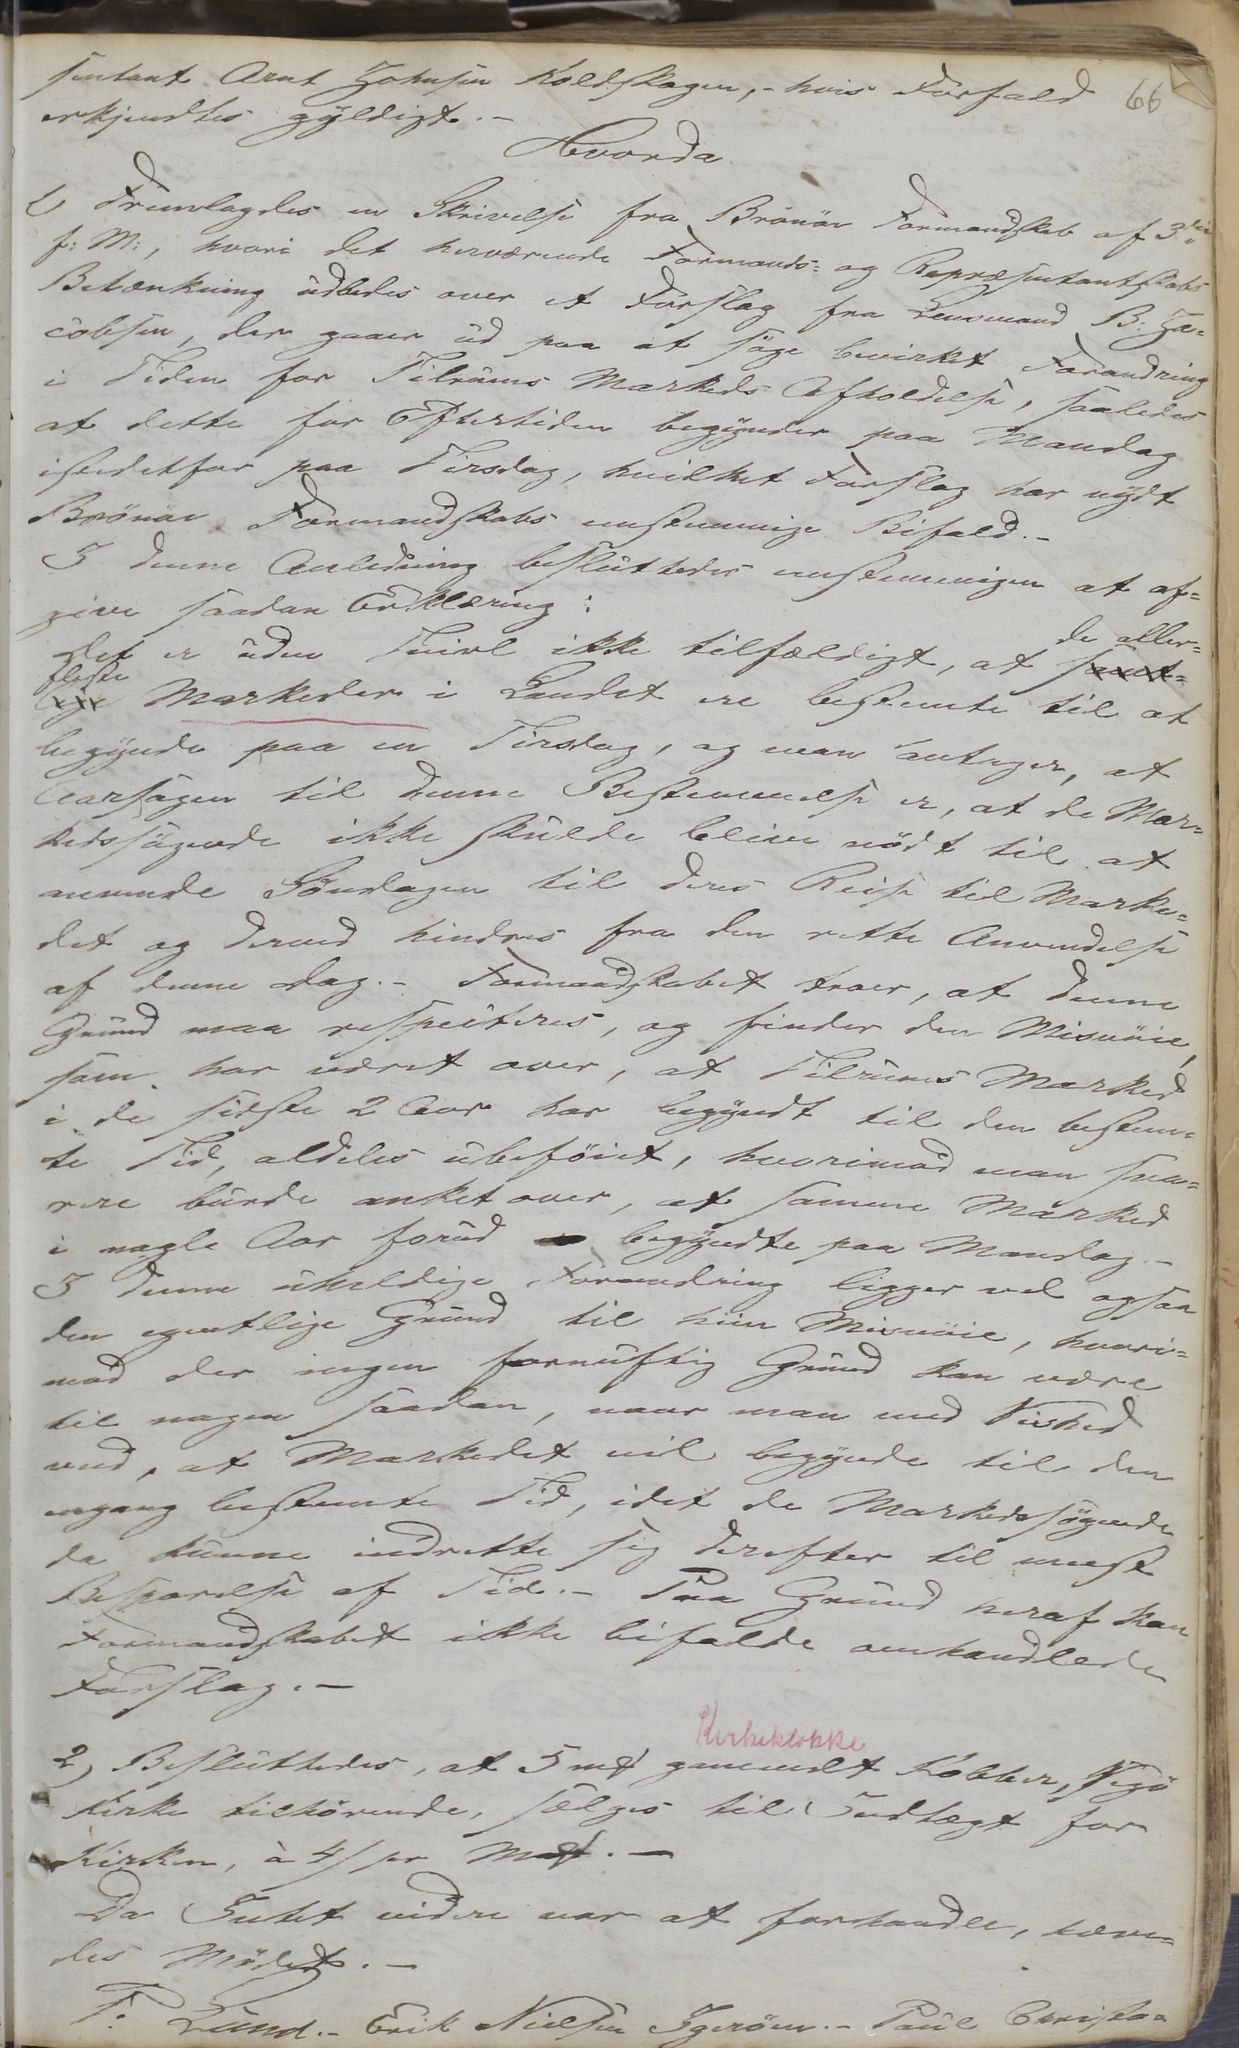 sentant Arnt Johnsen Koldskagen, - hvis Forfald 66
erkjendtes gyldigt. -
Hvorda
1) Fremlagdes en Skrivelse fra Brönöe Formandskab af 3die
f: M:, hvori det herværende Formands= og Repræsentantskabs
Betænkning udbedes over et Forslag fra Lensmand B: Ja=
cobsen, der gaaer ud paa at söge bevirket Forandring
i Tiden for Tilrums Markeds Afholdelse, saaledes
at dette for Eftertiden begynder paa Mandag
istedetfor paa Tirsdag, hvilket Forslag har nydt
Brönöe Formandskabs eenstemmige Bifald. -
I denne Anledning besluttedes eenstemmigen at af=
give saadan Erklæring:
de aller=
Det er uden Tvivl ikke tilfældigt, at samt=
fleste
lige Markeder i Landet ere bestemte til at
begynde paa en Tirsdag, og man antager, at
Aarsagen til denne Bestemmelse er, at de Mar=
kedssögende ikke skulde blive nödt til at
anvende Söndagen til deres Reise til Marke=
det og derved hindres fra den rette Anvendelse
af denne Dag. - Formandskabet troer, at denne
Grund maa respecteres, og finder den Misnöie,
som har været over, at Tilrums Marked
i de sidste 2 Aar har begyndt til den bestem=
te Tid, aldeles ubeföiet, hvorimod man sna=
rere burde anket over, at samme Marked
i nogle Aar forud begyndte paa Mandag. -
I denne uheldige Forandring ligger vel ogsaa
den egentlige Grund til hiin Misnöie, hvori=
mod der ingen fornuftig Grund kan være
til nogen saadan, naar man med Vished
veed, at Markedet vil begynde til den
engang bestemte Tid, idet de Markedssögende
da kunne indrette sig derefter til meest
Besparelse af Tid. - Paa Grund heraf kan
Formandskabet ikke bifalde omhandlede
Forslag. -
Kirkeklokke
2) Besluttedes, at 5 m gammelt Kobber, Vegö
Kirke tilhörende, sælges til Indtægt for
Kirken, à 4 s pr M. -
Da Intet videre var at forhandle, hæve=
des Mödet. -
F. Lund. - Erik Nielsen Igeröen. - Paul Christo=